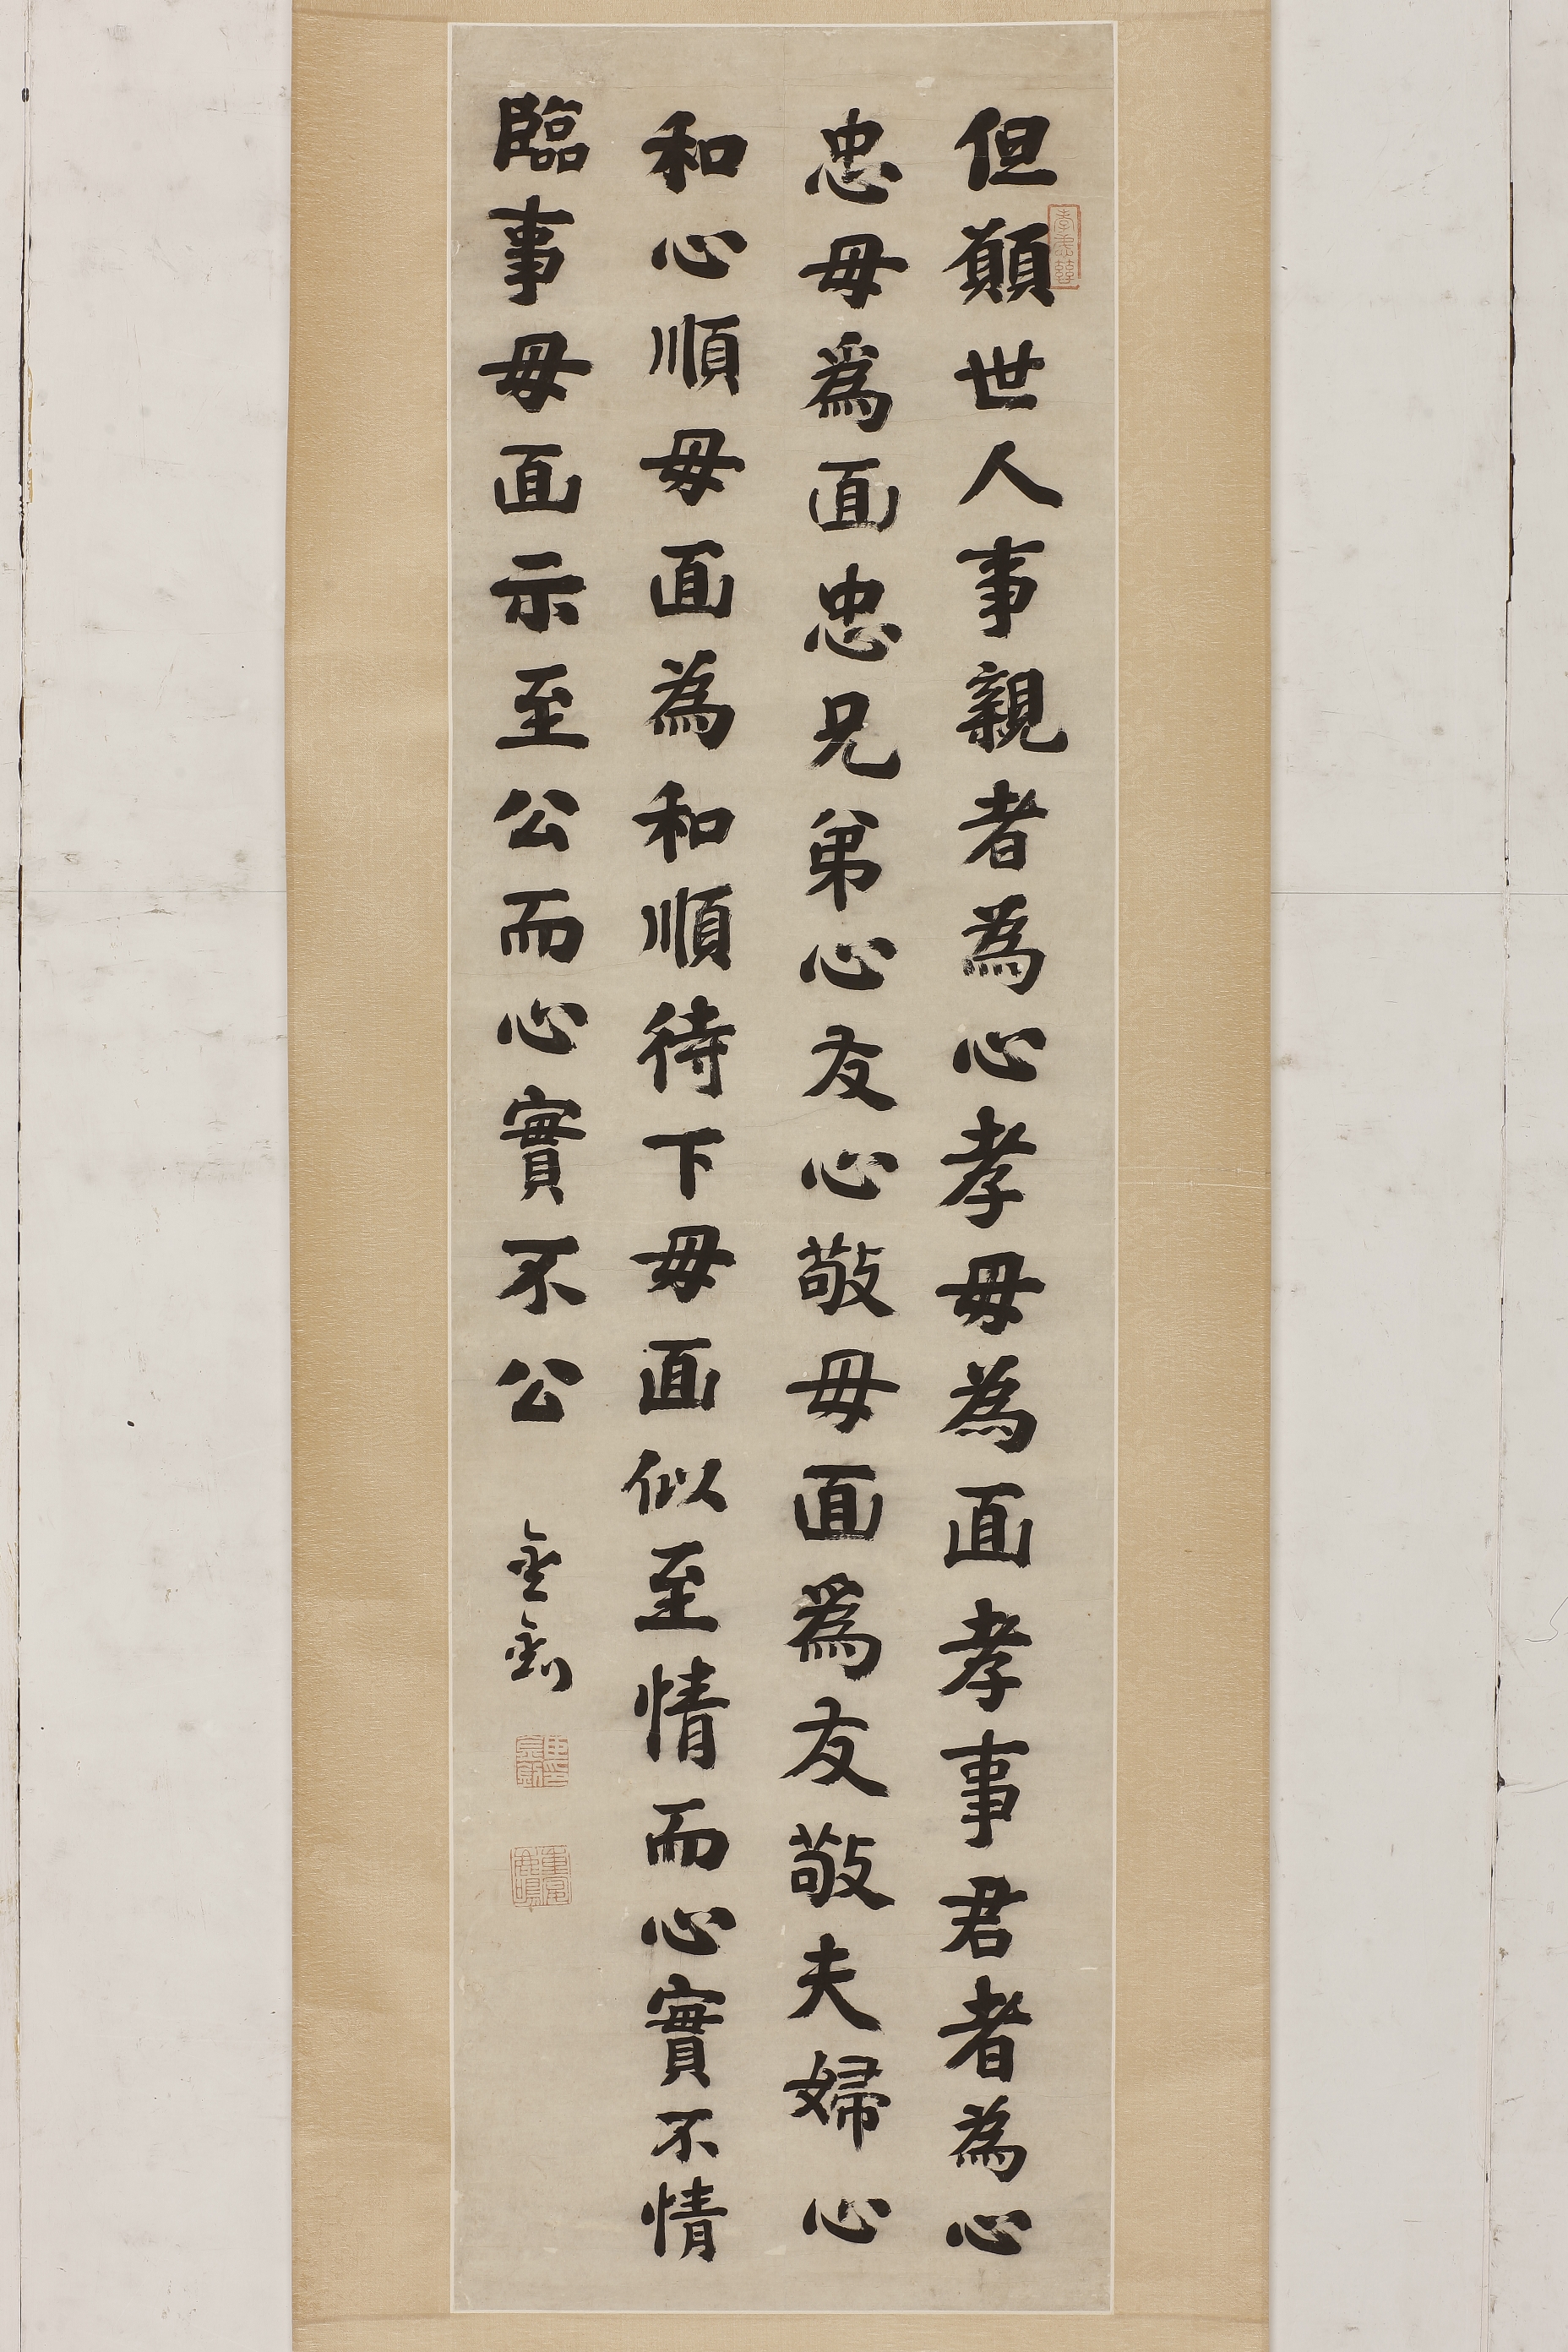 但願世人事親者為心孝毋為面孝事君者為心
忠毋為面忠兄弟心友心敬毋面為友敬夫婦心
和心順毋面為和順待下毋面似至情而心實不情
臨事毋面示至公而心實不公